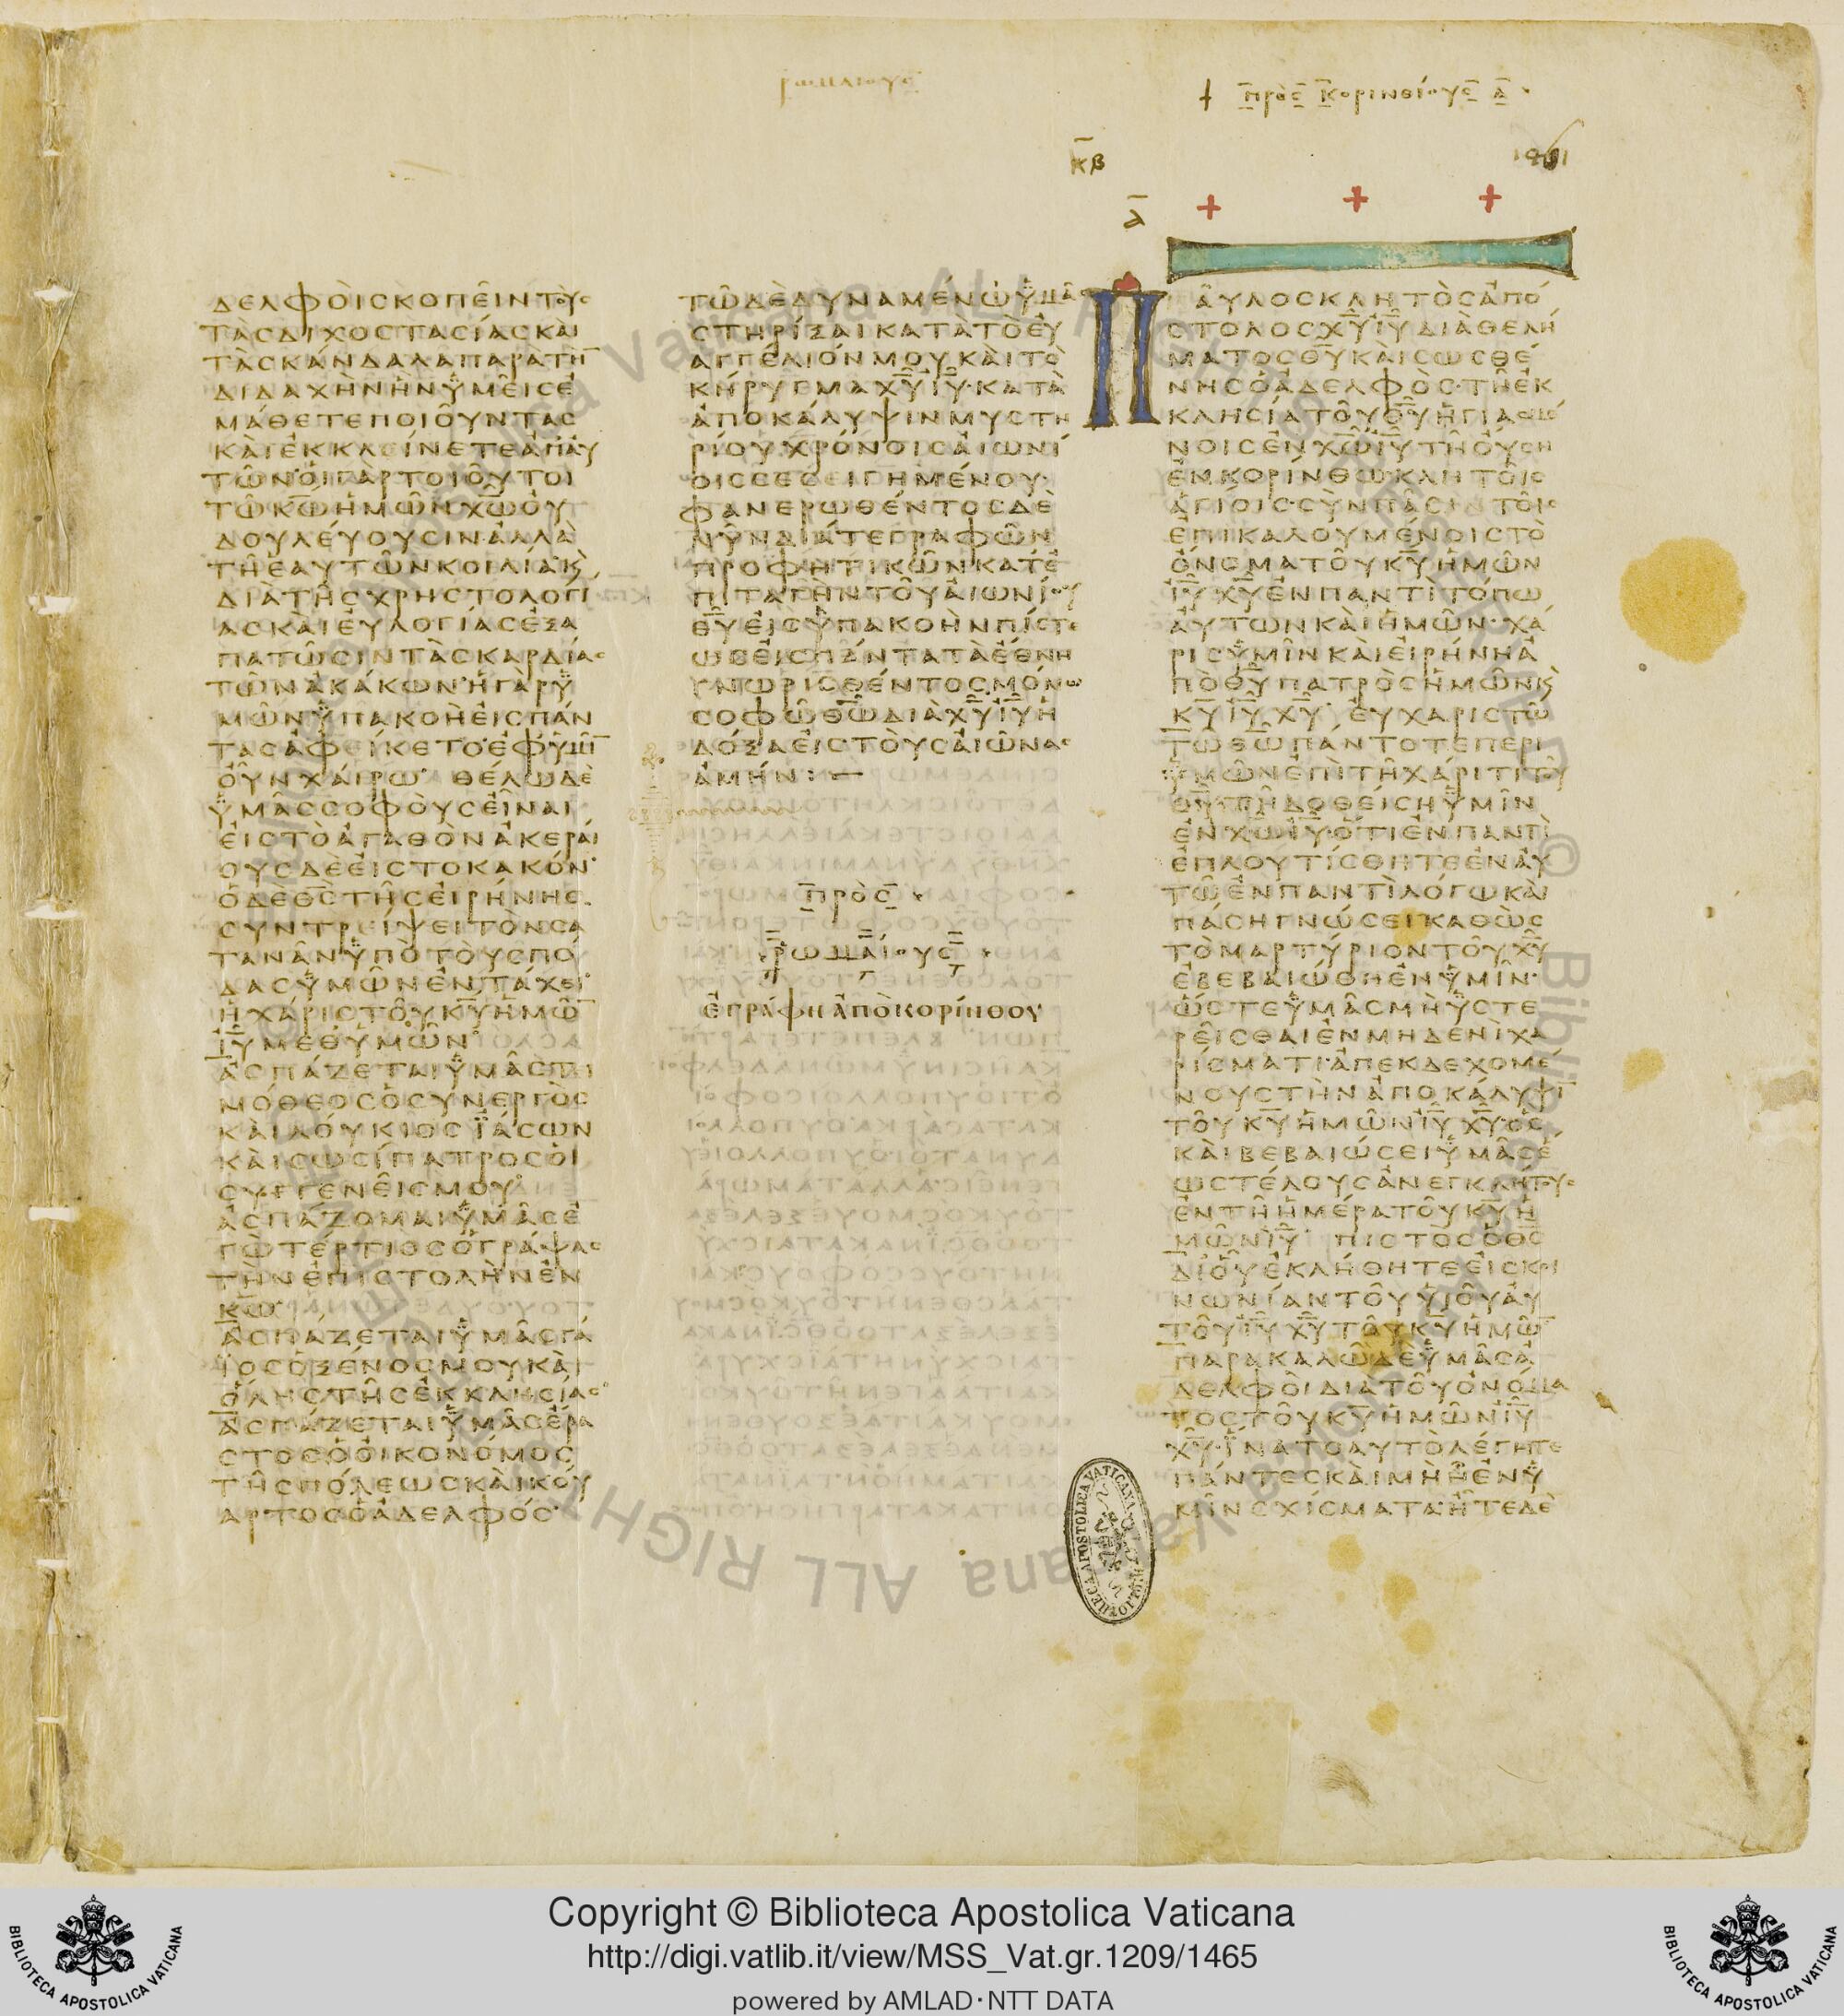 ρωμαιους
† πρὸς κορινθίους α
κβ
α
δελφὸισκοπεῖιντοὺς
τὰσδιχοστασίασκὰι
τὰσκάνδαλαπαρατὴ̅
διδαχὴνἣνϋμεῖισἐ
μάθετεποιοῦντασ
κὰιἐκκλείνετεἀπἀυ
τῶνὁιγὰρτοιοῦτοι
τῶκ̅ω̅ἡμῶνχ̅ω̅ὀυ
δουλέυουσιν·ἀλλὰ
τῆεαυτῶνκοιλίακ̀
διὰτῆσχρηστολογί
ασκαιἐυλογίασἐξα
πατῶσιντὰσκαρδίασ
τῶνἀκάκων·ἡγαρϋ
μῶνϋπακοὴἐισπάν
τασἀφείκετο·ἐφϋμῖ̅
ὀῦνχάιρω· θέλωδὲ
ϋμᾶσσοφὸυσεῖναι
ἐιστὸἀγαθὸνἀκεράι
ουσδὲἐιστοκακόν·
ὁδὲθ̅σ̅τῆσἐιρήνησ
συντρείψειτὸνσα
τανᾶνϋπὸτὸυσπό
δασϋμῶνἐντάχει·
ἡχάριστοῦκ̅υ̅ἡμῶ̅
ι̅υ̅μεθϋμῶν
ἀσπάζεταιϋμᾶστι
μόθεοσὁσυνεργὸσ
κὰιλόυκιοσϊάσων
κὰισωσίπατροσὁι
συγγενεῖισμου·
ἀσπάζομαιϋμᾶσἐ
γὼτέρτιοσὁγράψασ
τὴνἐπιστολὴνἐν
κ̅ω̅
ἀσπάζεταιϋμᾶσγά
ϊοσὁξένοσμουκὰι
ὅλησ τῆσἐκκλησίασ
ἀσπάζεταιϋμᾶσἔρα
στοσὁὀικονόμοσ
τῆσπόλεωσκὰικόυ
αρτοσὁἀδελφόσ·
τῶδὲδυναμένωϋμᾶσ
στηρίξαικατὰτὸἐυ
αγγέλιόνμουκὰιτὸ
κήρυγμαχ̅υ̅ι̅υ̅·κατὰ
ἀποκάλυψινμυστη
ρίουχρόνοισἀιωνί
οισσεσειγημένου·
φανερωθέντοσδὲ
νῦνδιάτεγραφῶν
προφητικῶνκατἐ
πιταγὴντοῦἀιωνίου
θ̅υ̅ἐισϋπακοὴνπίστε
ωσἐισπάντατὰἔθνη
γνωρισθέντοσμόνω
σοφῶθ̅ω̅διὰχ̅υ̅ι̅υ̅ἡ
δόξαἐιστὸυσἀιῶνασ
ἀμήν:—
πρὸς
ῥωμαίους
ἐγράφηἀπὸκορίνθου
Πᾶυλοσκλητὸσἀπό
στολοσχ̅υ̅ι̅υ̅διὰθελή
ματοσθ̅υ̅κὰισωσθέ
νησὁἀδελφὸσ·τῆἐκ
κλησίατοῦθ̅υ̅ἡγιασμέ
νοισἐνχ̅ω̅ι̅υ̅τῆὀυση
ἐνκορίνθωκλητοῖσ
ἁγίοισ·σὺνπᾶσιτοῖσ
ἐπικαλουμένοιστὸ
ὄνοματοῦκ̅υ̅ἡμῶν
ι̅υ̅χ̅υ̅ἐνπαντὶτόπω
ἀυτῶνκὰιἡμῶν·χά
ρισϋμῖνκὰιἐιρήνηἀ
πὸθ̅υ̅πατρὸσἡμῶνκ̀
κ̅υ̅ι̅υ̅χ̅υ̅· ἐυχαριστῶ
τῶθ̅ω̅πάντοτεπερὶ
ϋμῶνἐπὶτῆχάριτιτοῦ
θ̅υ̅τῆδοθείσηϋμῖν
ἐνχ̅ω̅ι̅υ̅·ὅτιἐνπαντὶ
ἐπλουτίσθητεἐνἀυ
τῶἐνπαντὶλόγωκὰι
πάσηγνώσεικαθὼσ
τὸμαρτύριοντοῦχ̅υ̅
ἐβεβαιώθηἐνϋμῖν·
ὥστεϋμᾶσμὴϋστε
ρεῖσθαιἐνμηδενὶχα
ρίσματι·ἀπεκδεχομέ
νουστὴνἀποκάλυψι̅
τοῦκ̅υ̅ἡμῶνι̅υ̅χ̅υ̅·ὃσ
κὰιβεβαιώσειϋμᾶσἕ
ωστέλουσἀνεγκλήτουσ
ἐντῆἡμέρατοῦκ̅υ̅ἡ
μῶνι̅υ̅ πιστὸσὁθ̅σ̅
διὁῦἐκλήθητεἐισκοι
νωνίαντοῦυἱοῦἀυ
τοῦι̅υ̅χ̅υ̅τοῦκ̅υ̅ἡμῶ̅
παρακαλῶδὲϋμᾶσἀ
δελφὸιδιὰτοῦὀνόμα
τοστοῦκ̅υ̅ἡμῶνι̅υ̅
χ̅υ̅·ἵνατοαυτὸλέγητε
πάντεσκὰιμὴἦἐνϋ
μῖνσχίσματα·ἦτεδὲ
BIBLIOTECA APOSTOLICA VATICANA
Copyright © Biblioteca Apostolica Vaticana
http://digi.vatlib.it/view/MSS_Vat.gr.1209/1465
powered by AMLAD·NTT DATA
BIBLIOTECA APOSTOLICA VATICANA
BIBLIOTECA APOSTOLICA VATICANA